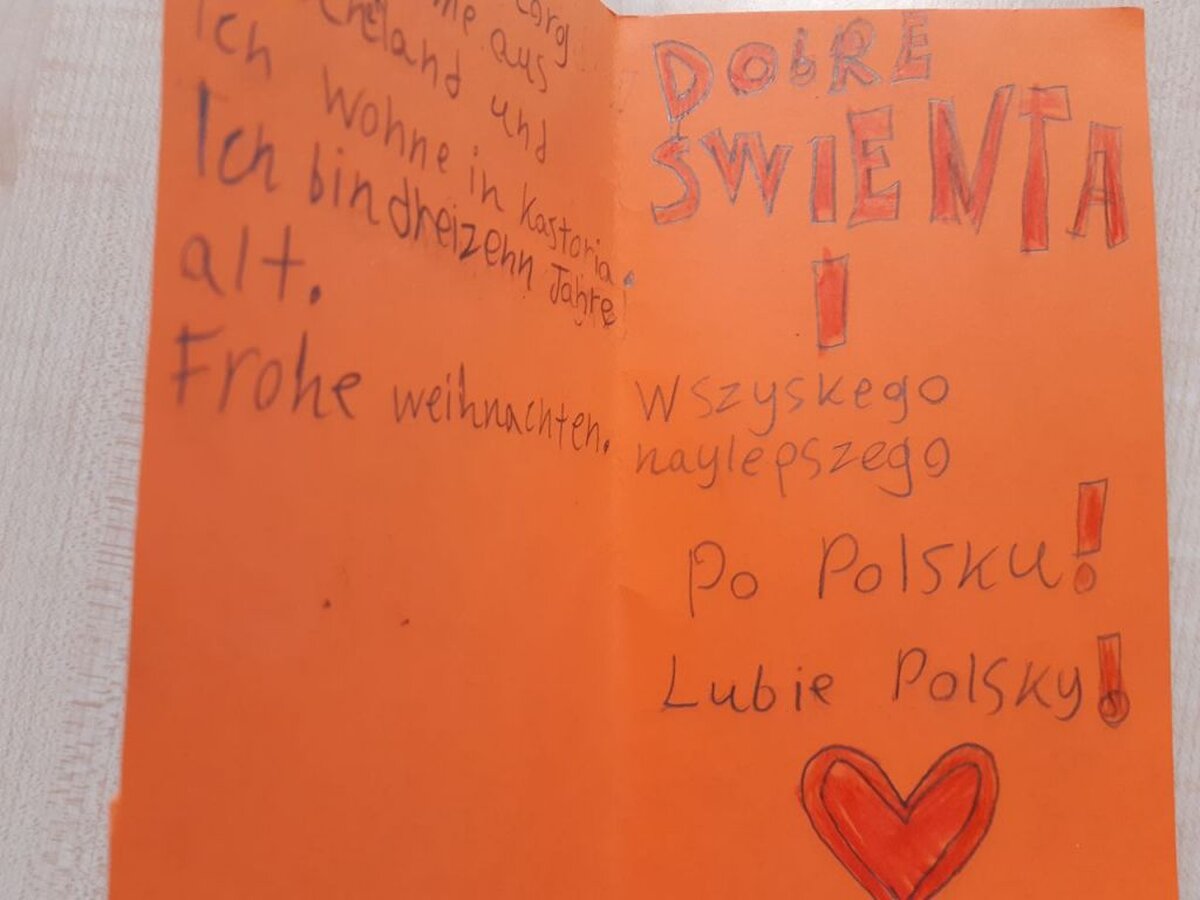 aus
und
Ich wohne in kastoria.
Ich bin dreizehn Jahre
alt.
Frohe weihnachten.
DObRE
SWIENTA
I
Wszyskego
naylepszego
Po Polsku!
Lubie Polsky!